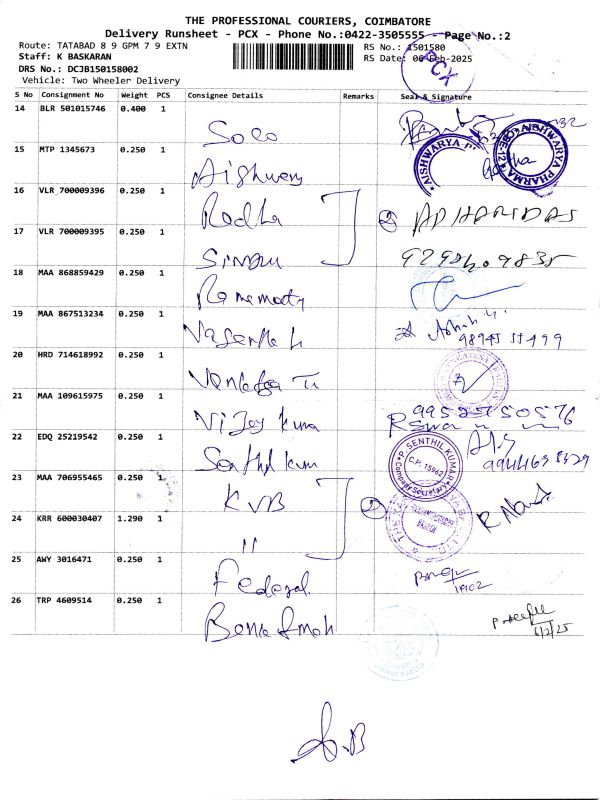 THE PROFESSIONAL COURIERS, COIMBATORE
Delivery Runsheet - PCX - Phone No.:0422-3505555 - Page No.:2
Route: TATABAD 8 9 GPM 7 9 EXTN
RS No.: 1501580
Staff: K BASKARAN
RS Date: 06-Feb-2025
DRS No.: DCJB150158002
PCX
Vehicle: Two Wheeler Delivery
S No Consignment No Weight PCS Consignee Details Remarks Seal & Signature
14 BLR 501015746 0.400 1 Solo
15 MTP 1345673 0.250 1 Aishwary
AISHWARYA PHARMA
16 VLR 700009396 0.250 1 Radha
2 ADHARIDAS
17 VLR 700009395 0.250 1
18 MAA 868859429 0.250 1
19 MAA 867513234 0.250 1
20 HRD 714618992 0.250 1
21 MAA 109615975 0.250 1 Vijay kuma
9952750576
22 EDQ 25219542 0.250 1 Senthil kum
P. SENTHIL KUMAR
C.P. 15962
Company Secretary
23 MAA 706955465 0.250 1 KVB
24 KRR 600030407 1.290 1 "
25 AWY 3016471 0.250 1 Federal
26 TRP 4609514 0.250 1
6/2/25